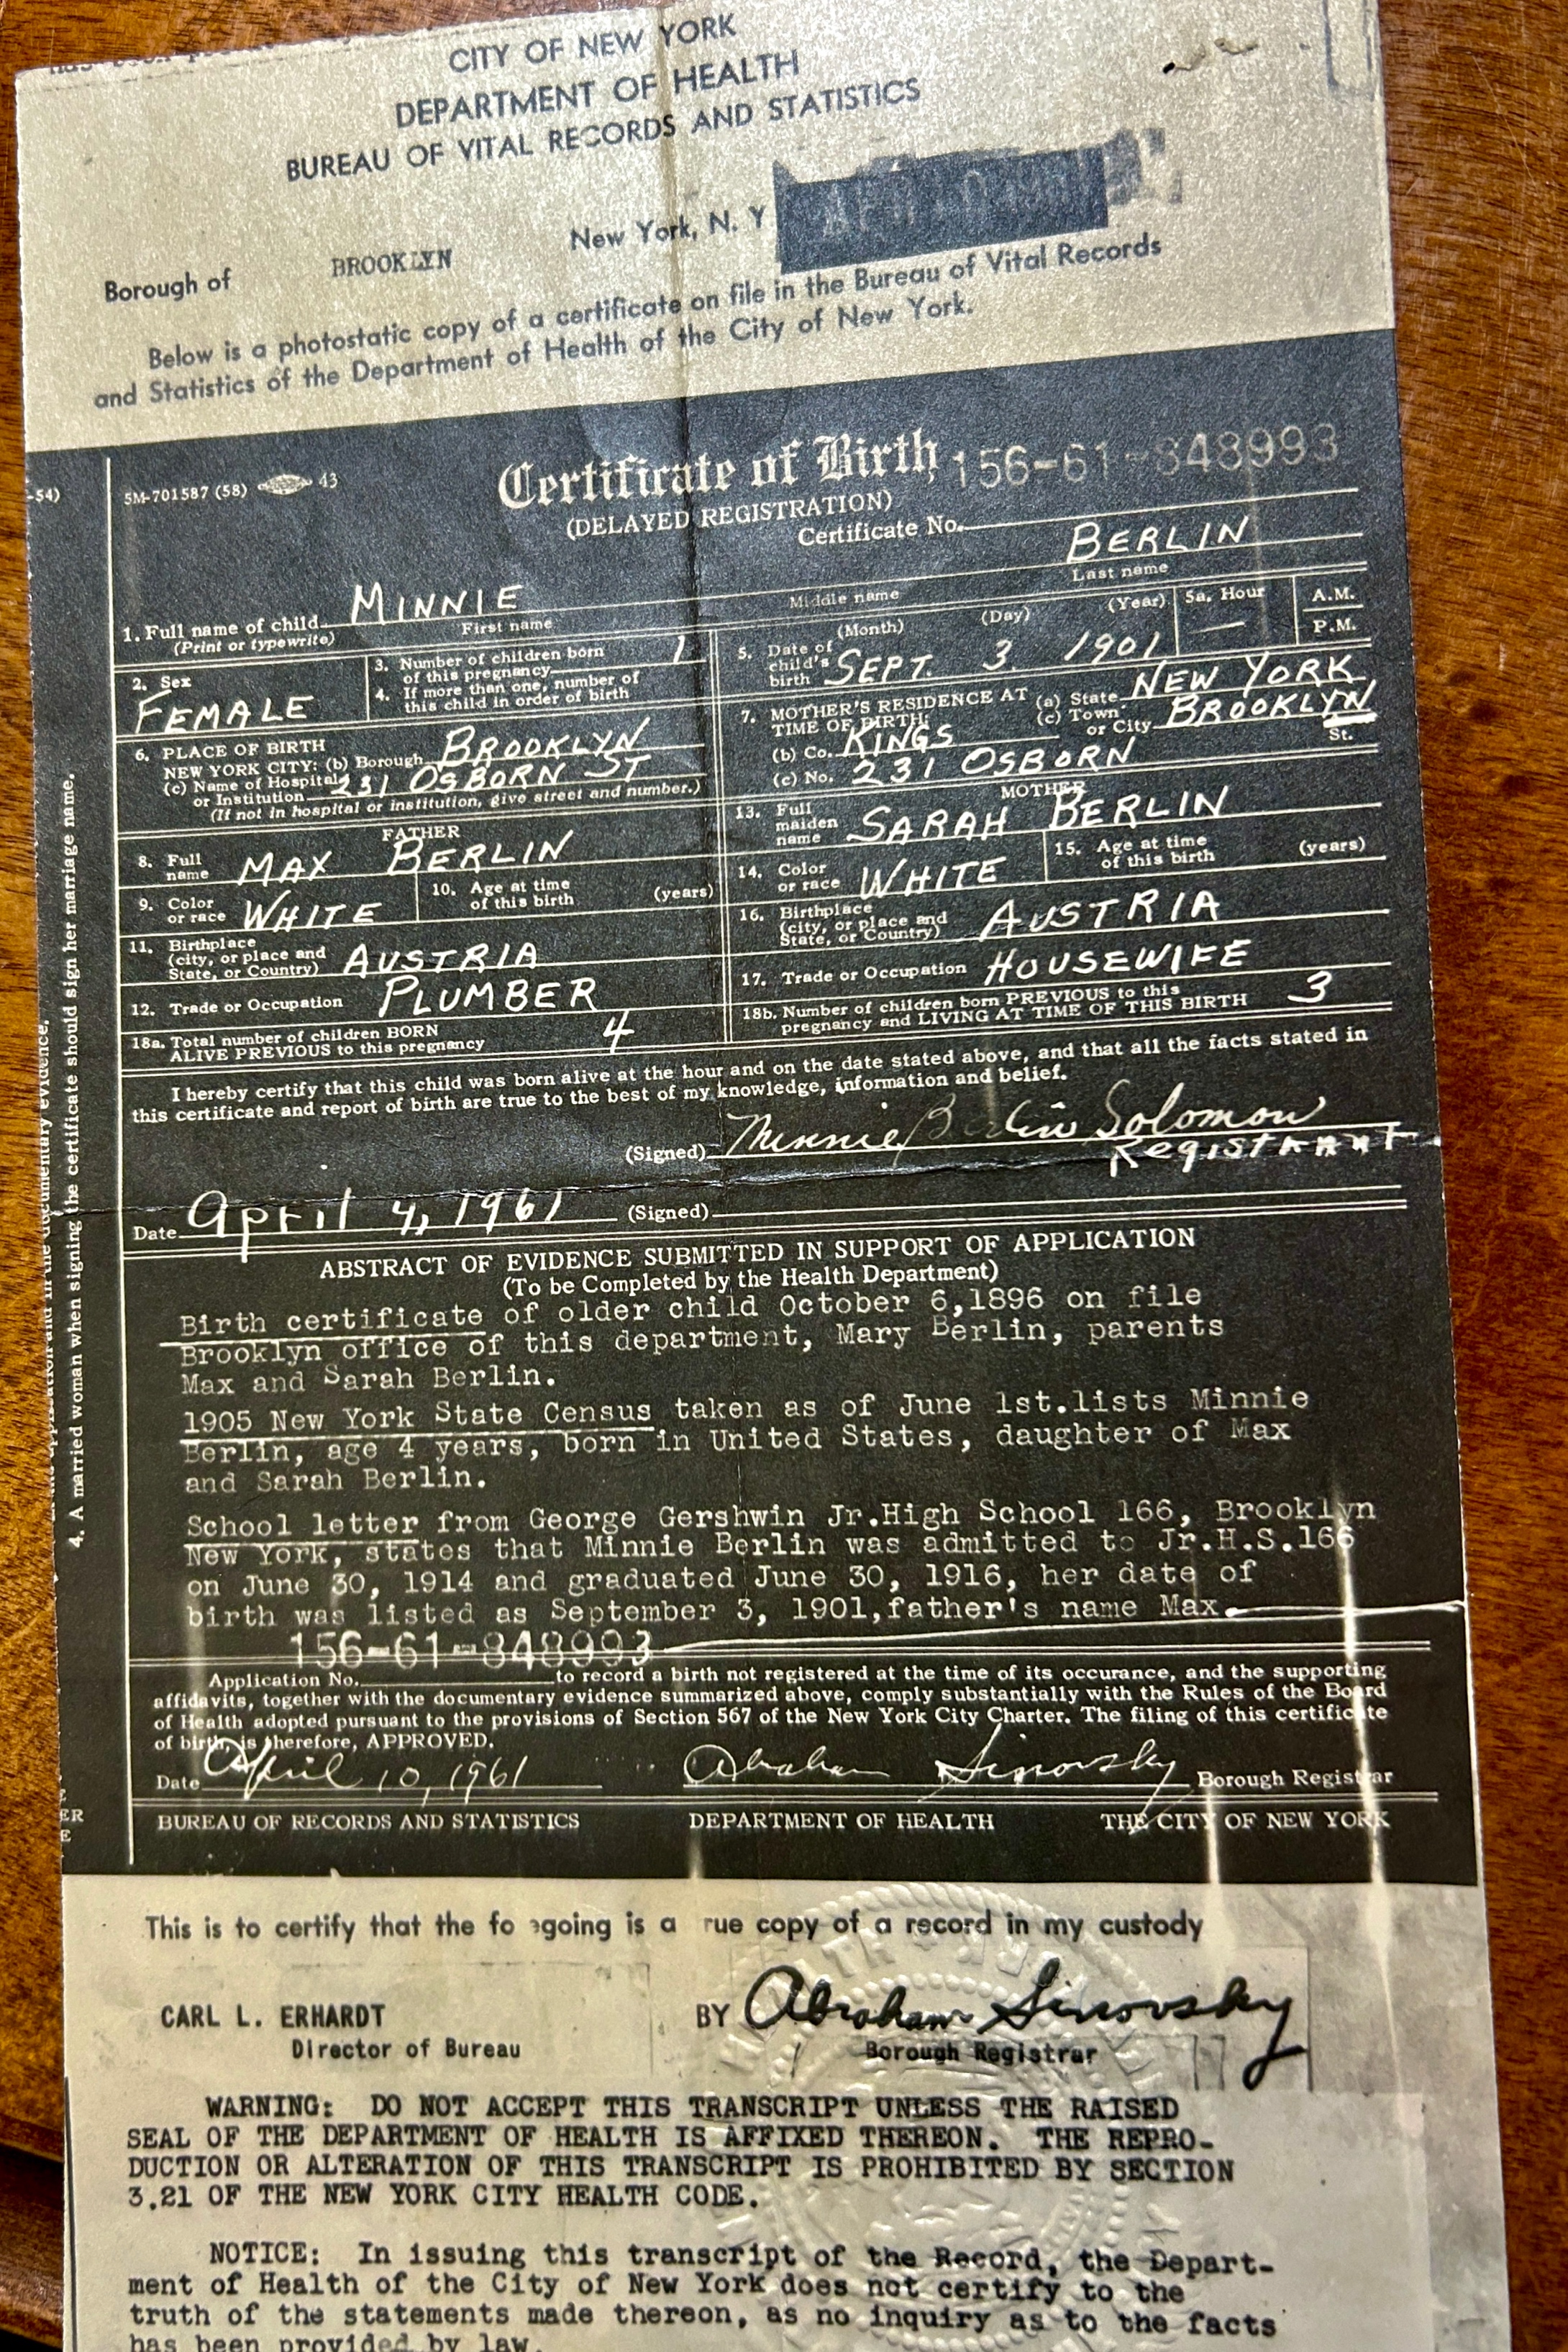 CITY OF NEW YORK
DEPARTMENT OF HEALTH
BUREAU OF VITAL RECORDS AND STATISTICS
New York, N. Y
Borough of BROOKLYN
Below is a photostatic copy of a certificate on file in the Bureau of Vital Records
and Statistics of the Department of Health of the City of New York.
-54)
5M-701587 (58) 43
Certificate of Birth 156-61-848993
(DELAYED REGISTRATION)
Certificate No.
1. Full name of child MINNIE BERLIN
(Print or typewrite) First name Middle name Last name
2. Sex
FEMALE
3. Number of children born
of this pregnancy 1
4. If more than one, number of
this child in order of birth
5. Date of
child's
birth
(Month) (Day) (Year)
SEPT. 3 1901
5a. Hour
—
A.M.
P.M.
6. PLACE OF BIRTH
NEW YORK CITY: (b) Borough BROOKLYN
(c) Name of Hospital
or Institution 231 OSBORN ST
(If not in hospital or institution, give street and number.)
7. MOTHER'S RESIDENCE AT
TIME OF BIRTH:
(a) State NEW YORK
(b) Co. KINGS
(c) Town
or City BROOKLYN
(c) No. 231 OSBORN St.
FATHER
8. Full
name MAX BERLIN
9. Color
or race WHITE
10. Age at time
of this birth (years)
11. Birthplace
(city, or place and
State, or Country) AUSTRIA
12. Trade or Occupation PLUMBER
MOTHER
13. Full
maiden
name SARAH BERLIN
14. Color
or race WHITE
15. Age at time
of this birth (years)
16. Birthplace
(city, or place and
State, or Country) AUSTRIA
17. Trade or Occupation HOUSEWIFE
18a. Total number of children BORN
ALIVE PREVIOUS to this pregnancy 4
18b. Number of children born PREVIOUS to this
pregnancy and LIVING AT TIME OF THIS BIRTH 3
I hereby certify that this child was born alive at the hour and on the date stated above, and that all the facts stated in
this certificate and report of birth are true to the best of my knowledge, information and belief.
(Signed) Minnie Berlin Solomon
REgISTRANT
Date April 4, 1961 (Signed)
ABSTRACT OF EVIDENCE SUBMITTED IN SUPPORT OF APPLICATION
(To be Completed by the Health Department)
Birth certificate of older child October 6,1896 on file
Brooklyn office of this department, Mary Berlin, parents
Max and Sarah Berlin.
1905 New York State Census taken as of June 1st.lists Minnie
Berlin, age 4 years, born in United States, daughter of Max
and Sarah Berlin.
School letter from George Gershwin Jr.High School 166, Brooklyn
New York, states that Minnie Berlin was admitted to Jr.H.S.166
on June 30, 1914 and graduated June 30, 1916, her date of
birth was listed as September 3, 1901,father's name Max.
156-61-848993
Application No. to record a birth not registered at the time of its occurance, and the supporting
affidavits, together with the documentary evidence summarized above, comply substantially with the Rules of the Board
of Health adopted pursuant to the provisions of Section 567 of the New York City Charter. The filing of this certificate
of birth, is therefore, APPROVED.
Date April 10, 1961 Abraham Sinovsky Borough Registrar
BUREAU OF RECORDS AND STATISTICS DEPARTMENT OF HEALTH THE CITY OF NEW YORK
4. A married woman when signing the certificate should sign her marriage name.
ER
E
This is to certify that the fo egoing is a rue copy of a record in my custody
CARL L. ERHARDT
Director of Bureau
BY Abraham Sinovsky
Borough Registrar
WARNING: DO NOT ACCEPT THIS TRANSCRIPT UNLESS THE RAISED
SEAL OF THE DEPARTMENT OF HEALTH IS AFFIXED THEREON. THE REPRO-
DUCTION OR ALTERATION OF THIS TRANSCRIPT IS PROHIBITED BY SECTION
3.21 OF THE NEW YORK CITY HEALTH CODE.
NOTICE: In issuing this transcript of the Record, the Depart-
ment of Health of the City of New York does not certify to the
truth of the statements made thereon, as no inquiry as to the facts
has been provided by law.